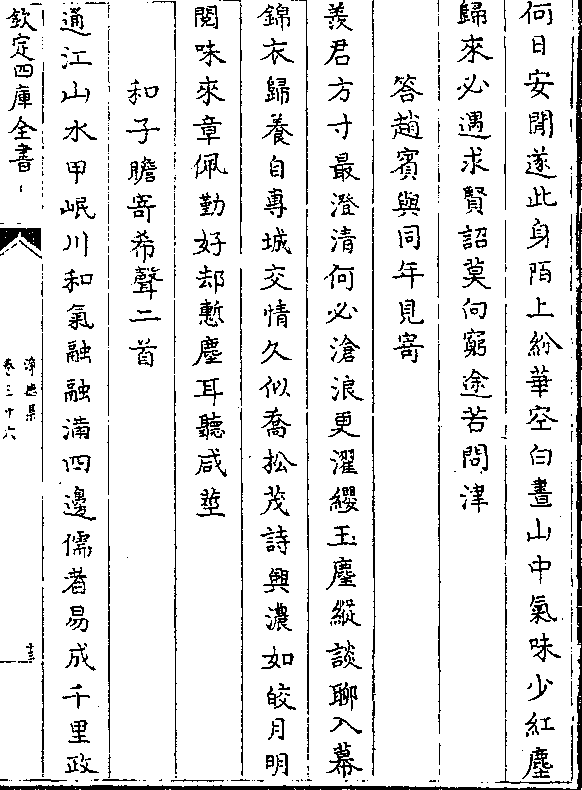 何日安閒遂此身陌上紛華空白晝山中氣味少紅塵
歸來必遇求賢詔莫向窮途苦問津
答趙賓與同年見寄
羨君方寸最澄清何必滄浪更濯纓玉麈縱談聊入幕
錦衣歸養自專城交情久似喬松茂詩興濃如皎月明
閱味來章佩勤好却慙塵耳聽咸莖
和子瞻寄希聲二首
通江山水甲岷川和氣融融滿四邊儒者易成千里政
欽定四庫全書
淨德集
卷三十六